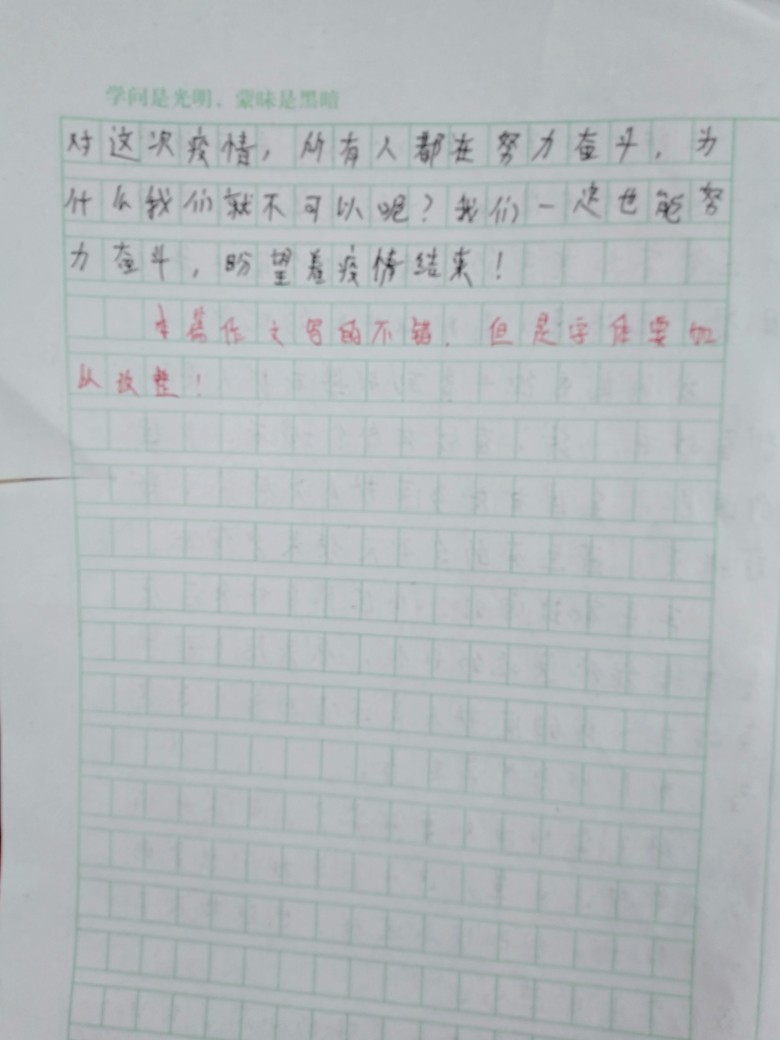 学问是光明，蒙昧是黑暗
对这次疫情，所有人都在努力奋斗，为
什么我们就不可以呢？我们一定也能努
力奋斗，盼望着疫情结束！
本篇作文写的不错．但是字任要加
以改整！